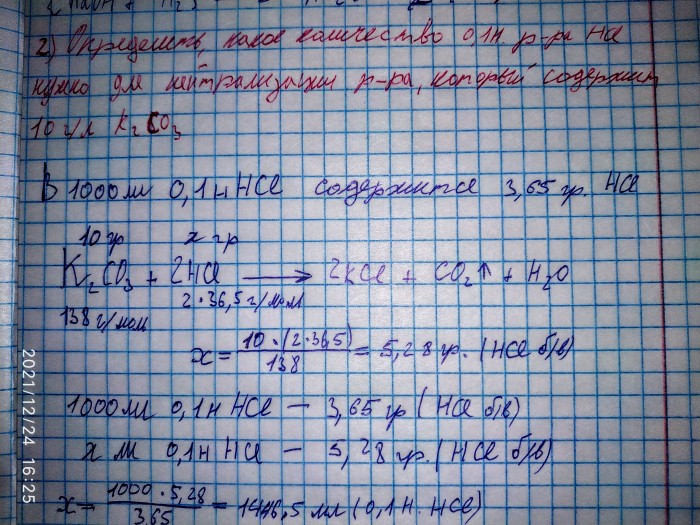 NaOH + H₂S
2) Определить, какое количество 0,1н. р-ра HCl
нужно для нейтрализации р-ра, который содержит
10 г/л K₂CO₃
В 1000 мл 0,1н HCl содержится 3,65 гр. HCl
10 гр x гр
K₂CO₃ + 2HCl ⟶ 2KCl + CO₂↑ + H₂O
138 г/мол 2·36,5 г/мол
x = 10·(2·36,5) / 138 = 5,28 гр. (HCl б/в)
1000 мл 0,1н HCl – 3,65 гр (HCl б/в)
x мл 0,1н HCl – 5,28 гр. (HCl б/в)
x = 1000·5,28 / 3,65 = 1446,5 мл (0,1н. HCl)
2021/12/24 16:25